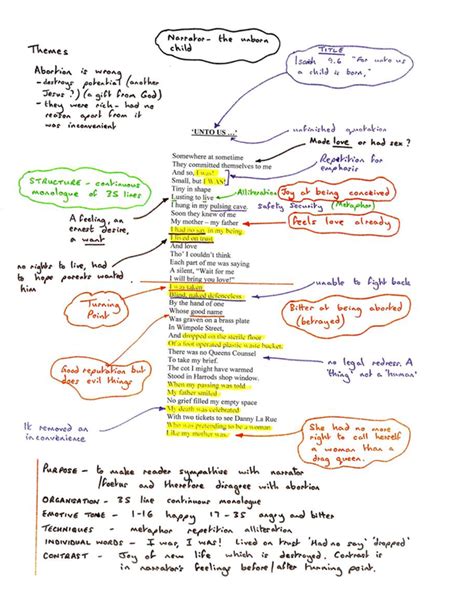 Narrator - the unborn
child
Themes
Abortion is wrong
- destroys potential (another
Jesus?) (a gift from God)
- they were rich - had no
reason apart from it
was inconvenient
TITLE
Isaiah 9.6 "For unto us
a child is born,"
'UNTO US ...'
unfinished quotation
Made love or had sex?
Repetition for
emphasis
STRUCTURE - continuous
monologue of 35 lines
Alliteration
Joy at being conceived
safety security (Metaphor)
feels love already
A feeling, an
ernest desire,
a want
no rights to live, had
to hope parents wanted
him
Somewhere at sometime
They committed themselves to me
And so, I was!
Small, but I WAS!
Tiny in shape
Lusting to live
I hung in my pulsing cave.
Soon they knew of me
My mother – my father
I had no say in my being
I lived on trust
And love
Tho' I couldn't think
Each part of me was saying
A silent, "Wait for me
I will bring you love!"
I was taken
Blind, naked defenceless
By the hand of one
Whose good name
Was graven on a brass plate
In Wimpole Street,
And dropped on the sterile floor
Of a foot operated plastic waste bucket.
There was no Queens Counsel
To take my brief.
The cot I might have warmed
Stood in Harrods shop window.
When my passing was told
My father smiled
No grief filled my empty space
My death was celebrated
With two tickets to see Danny La Rue
Who was pretending to be a woman
Like my mother was.
Turning
Point
unable to fight back
Bitter at being aborted
(betrayed)
Good reputation but
does evil things
no legal redress. A
'thing' not a 'human'
It removed an
inconvenience
She had no more
right to call herself
a woman than a
drag queen.
PURPOSE - to make reader sympathise with narrator
/foetus and therefore disagree with abortion
ORGANISATION - 35 line continuous monologue
EMOTIVE TONE - 1-16 happy 17-35 angry and bitter
TECHNIQUES - metaphor repetition alliteration
INDIVIDUAL WORDS - I was, I was! Lived on trust 'Had no say' 'dropped'
CONTRAST - Joy of new life which is destroyed. Contrast is
in narrator's feelings before/after turning point.